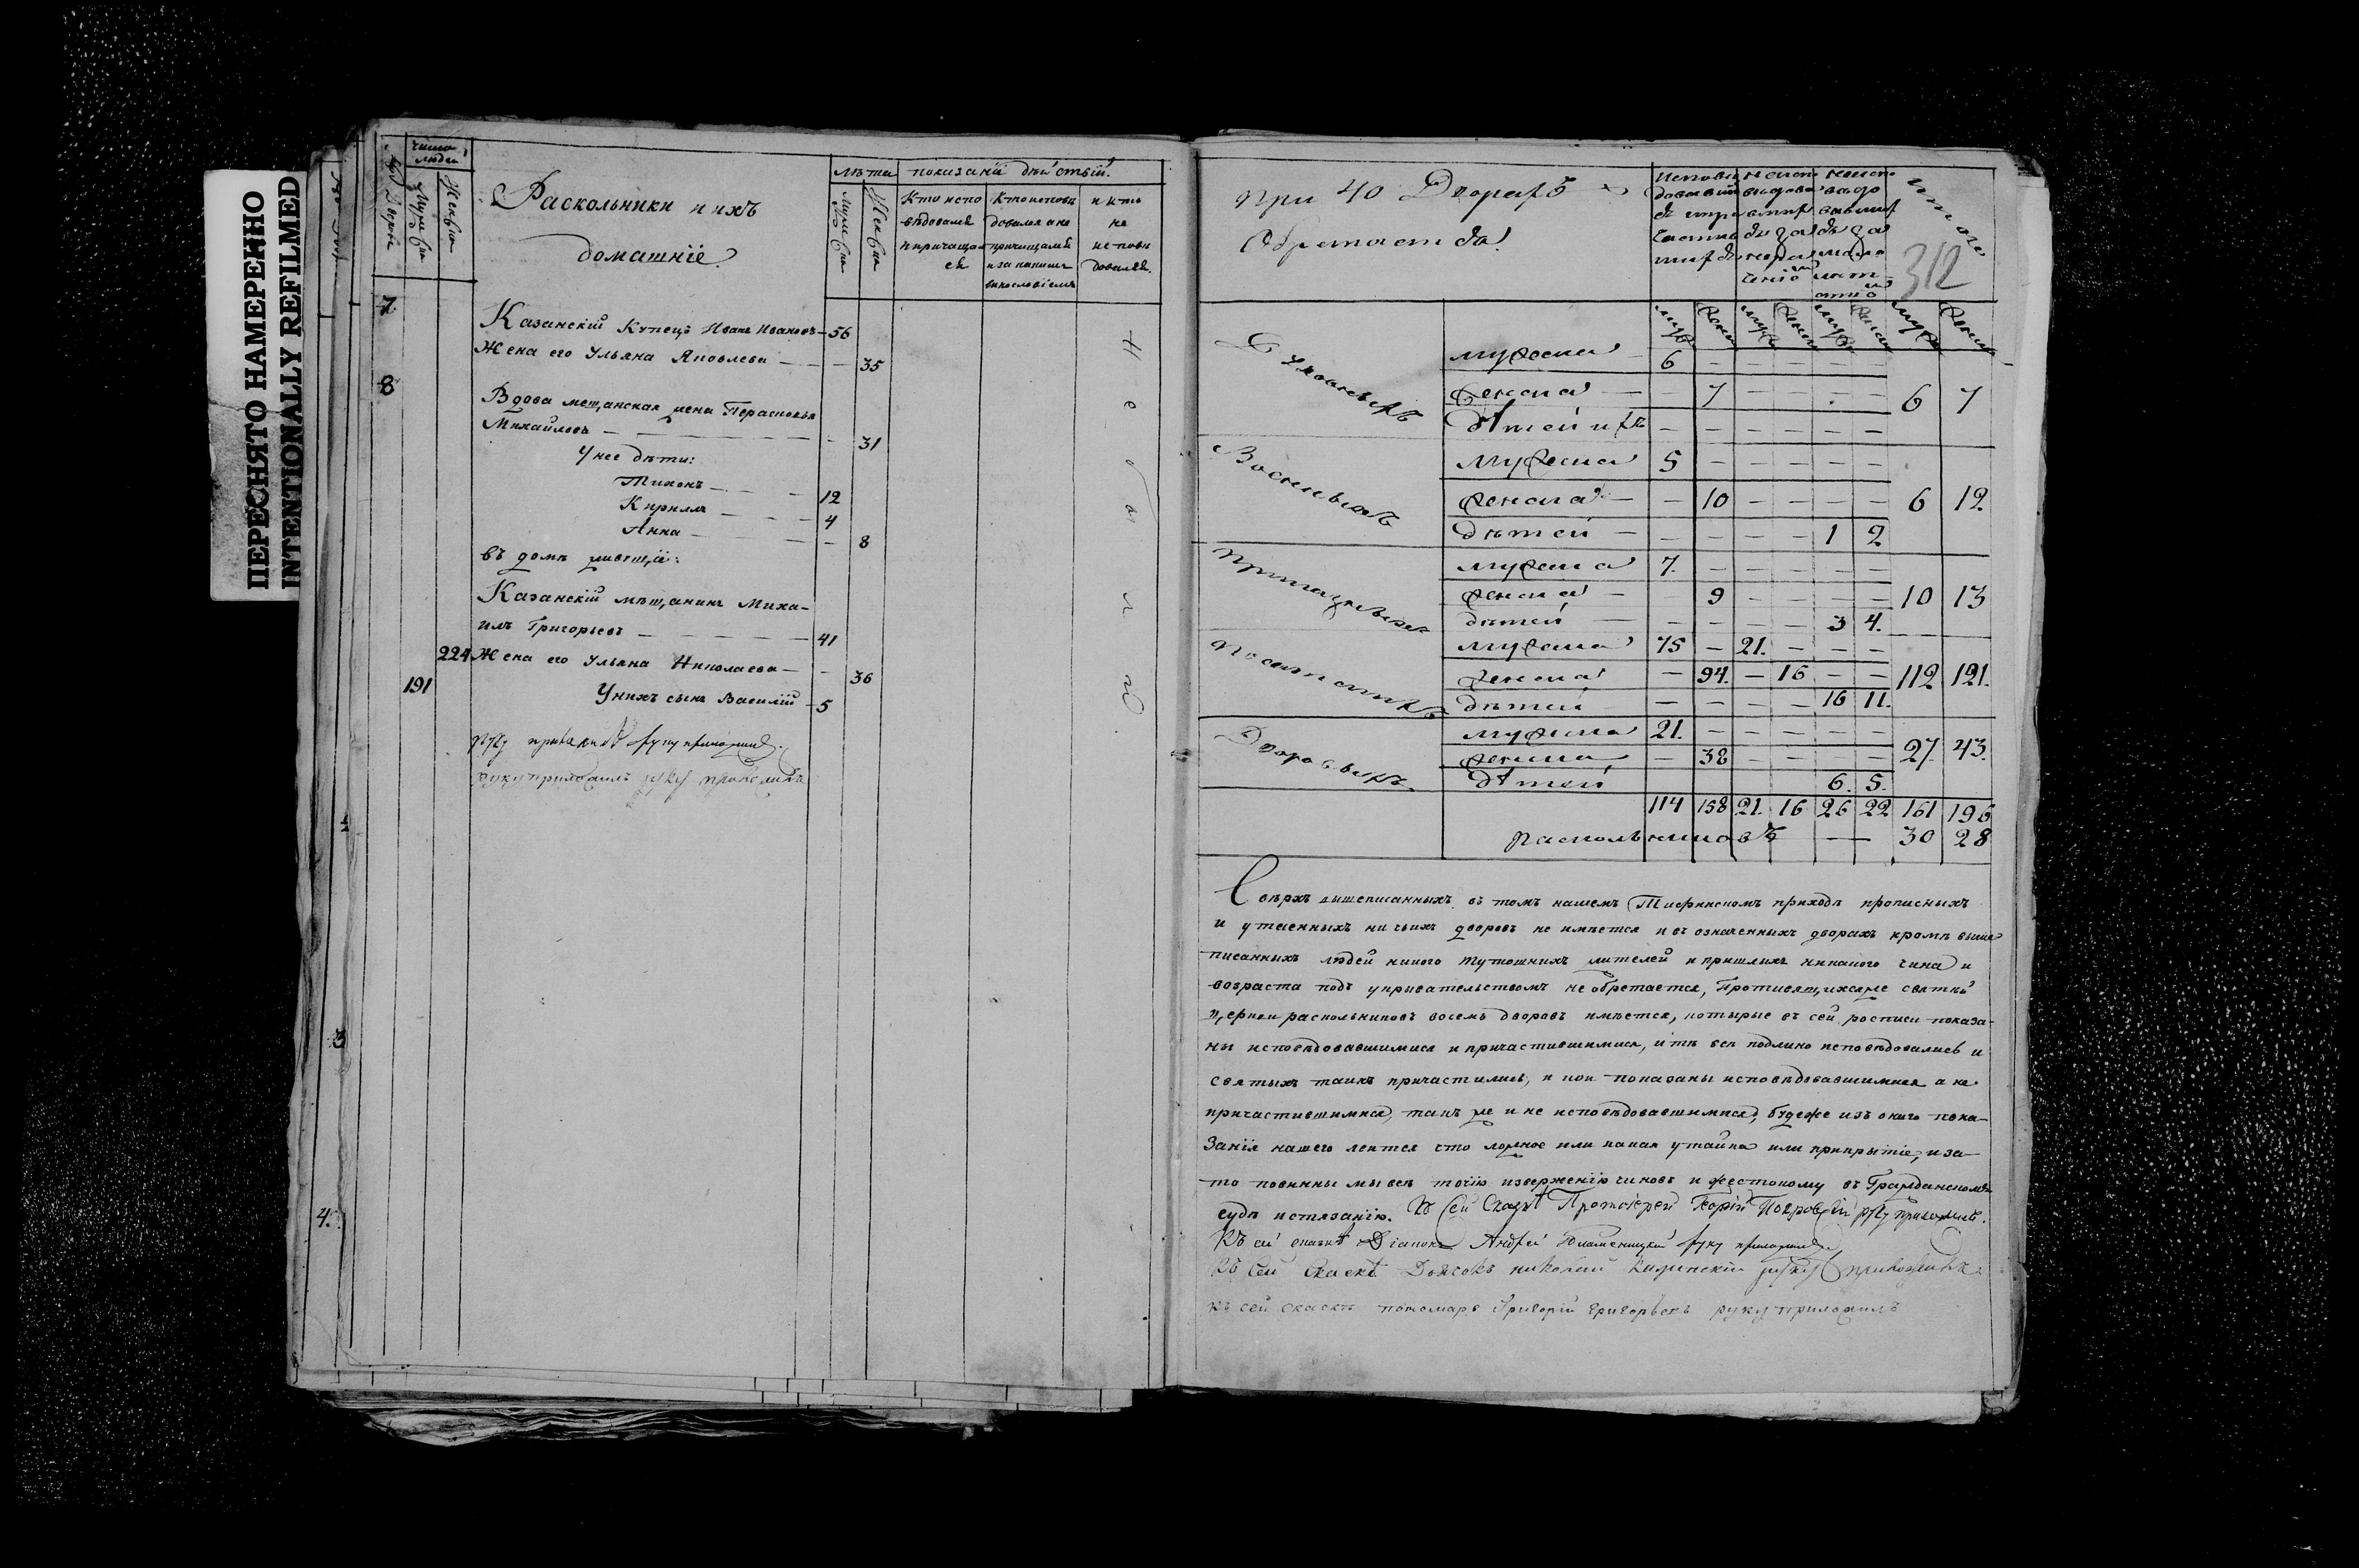 ПЕРЕСНЯТО НАМЕРЕННО
INTENTIONALLY REFILMED
Число людей
Раскольники и ихъ
домашніе
лѣта
показаніи дѣйствій
Кто испо
вѣдовался
и причащал
ся
Кто исповѣ
довался а не
причащался
и за какимъ
винословіемъ
и кто
не
испови
довался.
7
Казанскій Купецъ Иванъ Ивановъ — 56
Жена его Ульяна Яковлева — — 35
8
Вдова мещанская жена Парасковья
Михайлова — — 31
У нее дѣти:
Тихонъ — 12
Кирилъ — 4
Анна — — 8
въ домѣ живущіи:
Казанскій мѣщанинъ Миха-
илъ Григорьевъ — 41
224 Жена его Ульяна Николаева — — 36
191 У нихъ сынъ Василій — 5
руку приложилъ руку приложилъ
руку приложилъ руку приложилъ
Не были
3
4.
При 40 Дворахъ
Обретается
итого
312
Духовныхъ
мужеска 6 — — — — —
женска — 7 — — — — 6 7
дѣтей ихъ — — — — — —
Военныхъ
мужеска 5 — — — — —
женска — 10 — — — — 6 12
дѣтей — — — — 1 2
Приказныхъ
мужеска 7. — — — — —
женска — 9 — — — — 10 13
дѣтей — — — — 3 4.
Посатскихъ
мужеска 75 — 21. — — —
женска — 94. — 16 — — 112 121.
дѣтей — — — — 16 11.
Дворовыхъ.
мужеска 21. — — — — —
женска — 38 — — — — 27. 43.
дѣтей 6. 5.
114 158 21. 16 26 22 161 196
раскольниковъ — 30 28
Сверхъ вышеписанныхъ въ томъ нашемъ приходѣ прописныхъ
и утаенныхъ ничьихъ дворовъ не имѣется и въ означенныхъ дворахъ кромѣ выше
писанныхъ людей никого тутошнихъ жителей и пришлыхъ никакого чина и
возраста подъ укривательствомъ не обретается, Противящихсяже святѣй
церкви раскольниковъ восемь дворовъ имѣется, которые въ сей росписи показа-
ны исповѣдовавшимися и причастившимися, и тѣ всѣ подлино исповѣдовались и
святыхъ таинъ причастились, и кои показаны исповѣдовавшимися а не
причастившимися, такъ же и не исповѣдовавшимися, будеже изъ онаго пока-
занія нашего явится что ложное или какая утайка или прикрытіе, и за
то повинны мы всѣ точію изверженію чиновъ и жестокому въ Гражданскомъ
судѣ истязанію. Къ сей Сказкѣ Протоіерей Георгій Покровскій руку приложилъ.
Къ сей сказкѣ Діаконъ Андрей руку приложилъ
Къ сей Сказкѣ Дьячокъ николай руку приложилъ
къ сей сказкѣ пономарь Григорій григорьевъ руку приложилъ